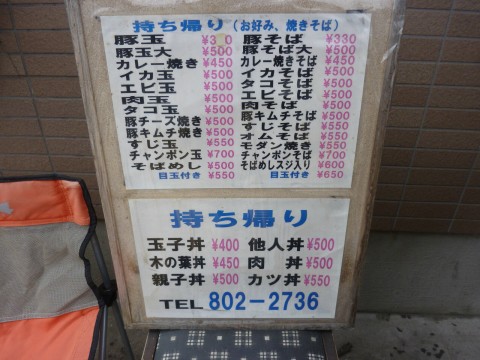 持ち帰り(お好み、焼きそば)
豚玉 ¥330 豚そば ¥330
豚玉大 ¥500 豚そば大 ¥500
カレー焼き ¥450 カレー焼そば ¥450
イカ玉 ¥500 イカそば ¥500
エビ玉 ¥500 タコそば ¥500
肉玉 ¥500 エビそば ¥500
タコ玉 ¥500 肉そば ¥500
豚チーズ焼き ¥500 豚キムチそば ¥500
豚キムチ焼き ¥500 すじそば ¥550
すじ玉 ¥550 オムそば ¥550
チャンポン玉 ¥700 モダン焼き ¥550
そばめし ¥500 チャンポンそば ¥700
目玉付き ¥550 そばめしスジ入り ¥600
目玉付き ¥650
持ち帰り
玉子丼 ¥400 他人丼 ¥500
木の葉丼 ¥450 肉 丼 ¥500
親子丼 ¥500 カツ丼 ¥550
TEL 802-2736